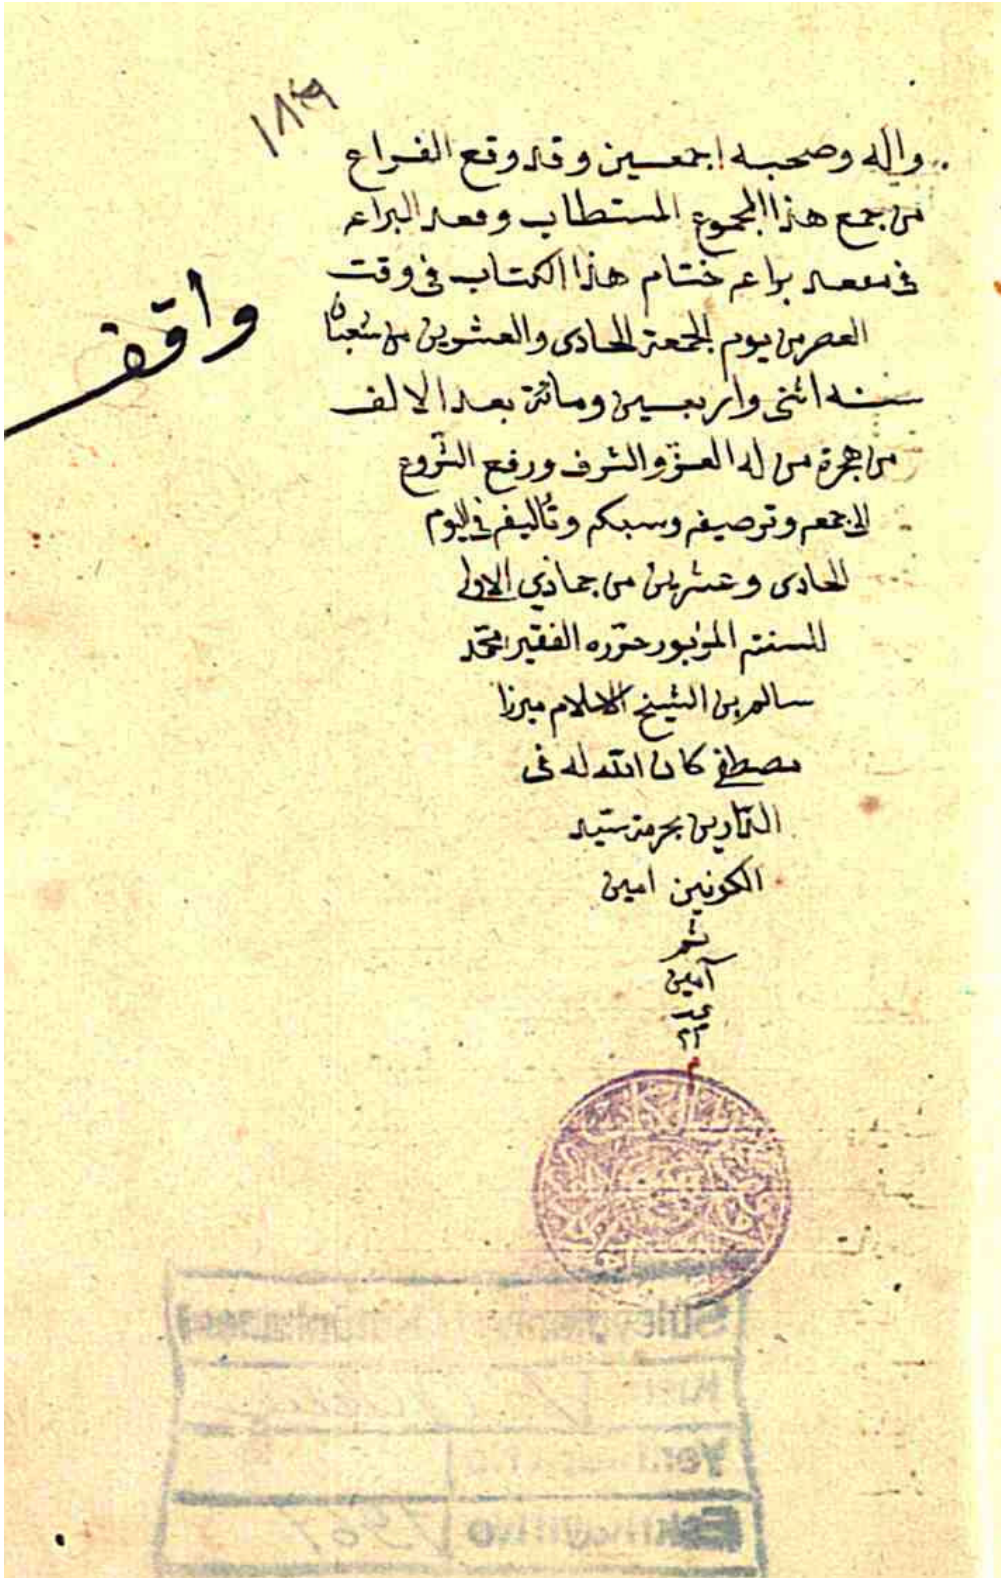 ١٨٣٩
واله وصحبه اجمعين وقد وقع الفراغ
من جمع هذا المجموع المستطاب ومعد البراعه
فى براعه ختام هذا الكتاب فى وقت
العصر من يوم الجمعة الحادى والعشرين من شعبان
سنه اثنى واربعين ومائة بعد الالف
من هجرة من له العز والشرف ورفع الشروع
الى جمعه وترصيفه وسبكه وتأليفه فى اليوم
الحادى وعشرين من جماذي الاولى
للسنة المزبور حرره الفقير محمد
سالم بن الشيخ الاسلام ميرزا
مصطفى كان الله له فى
الدارين بحرمة سيد
الكونين امين
ثم
آمين
واقف